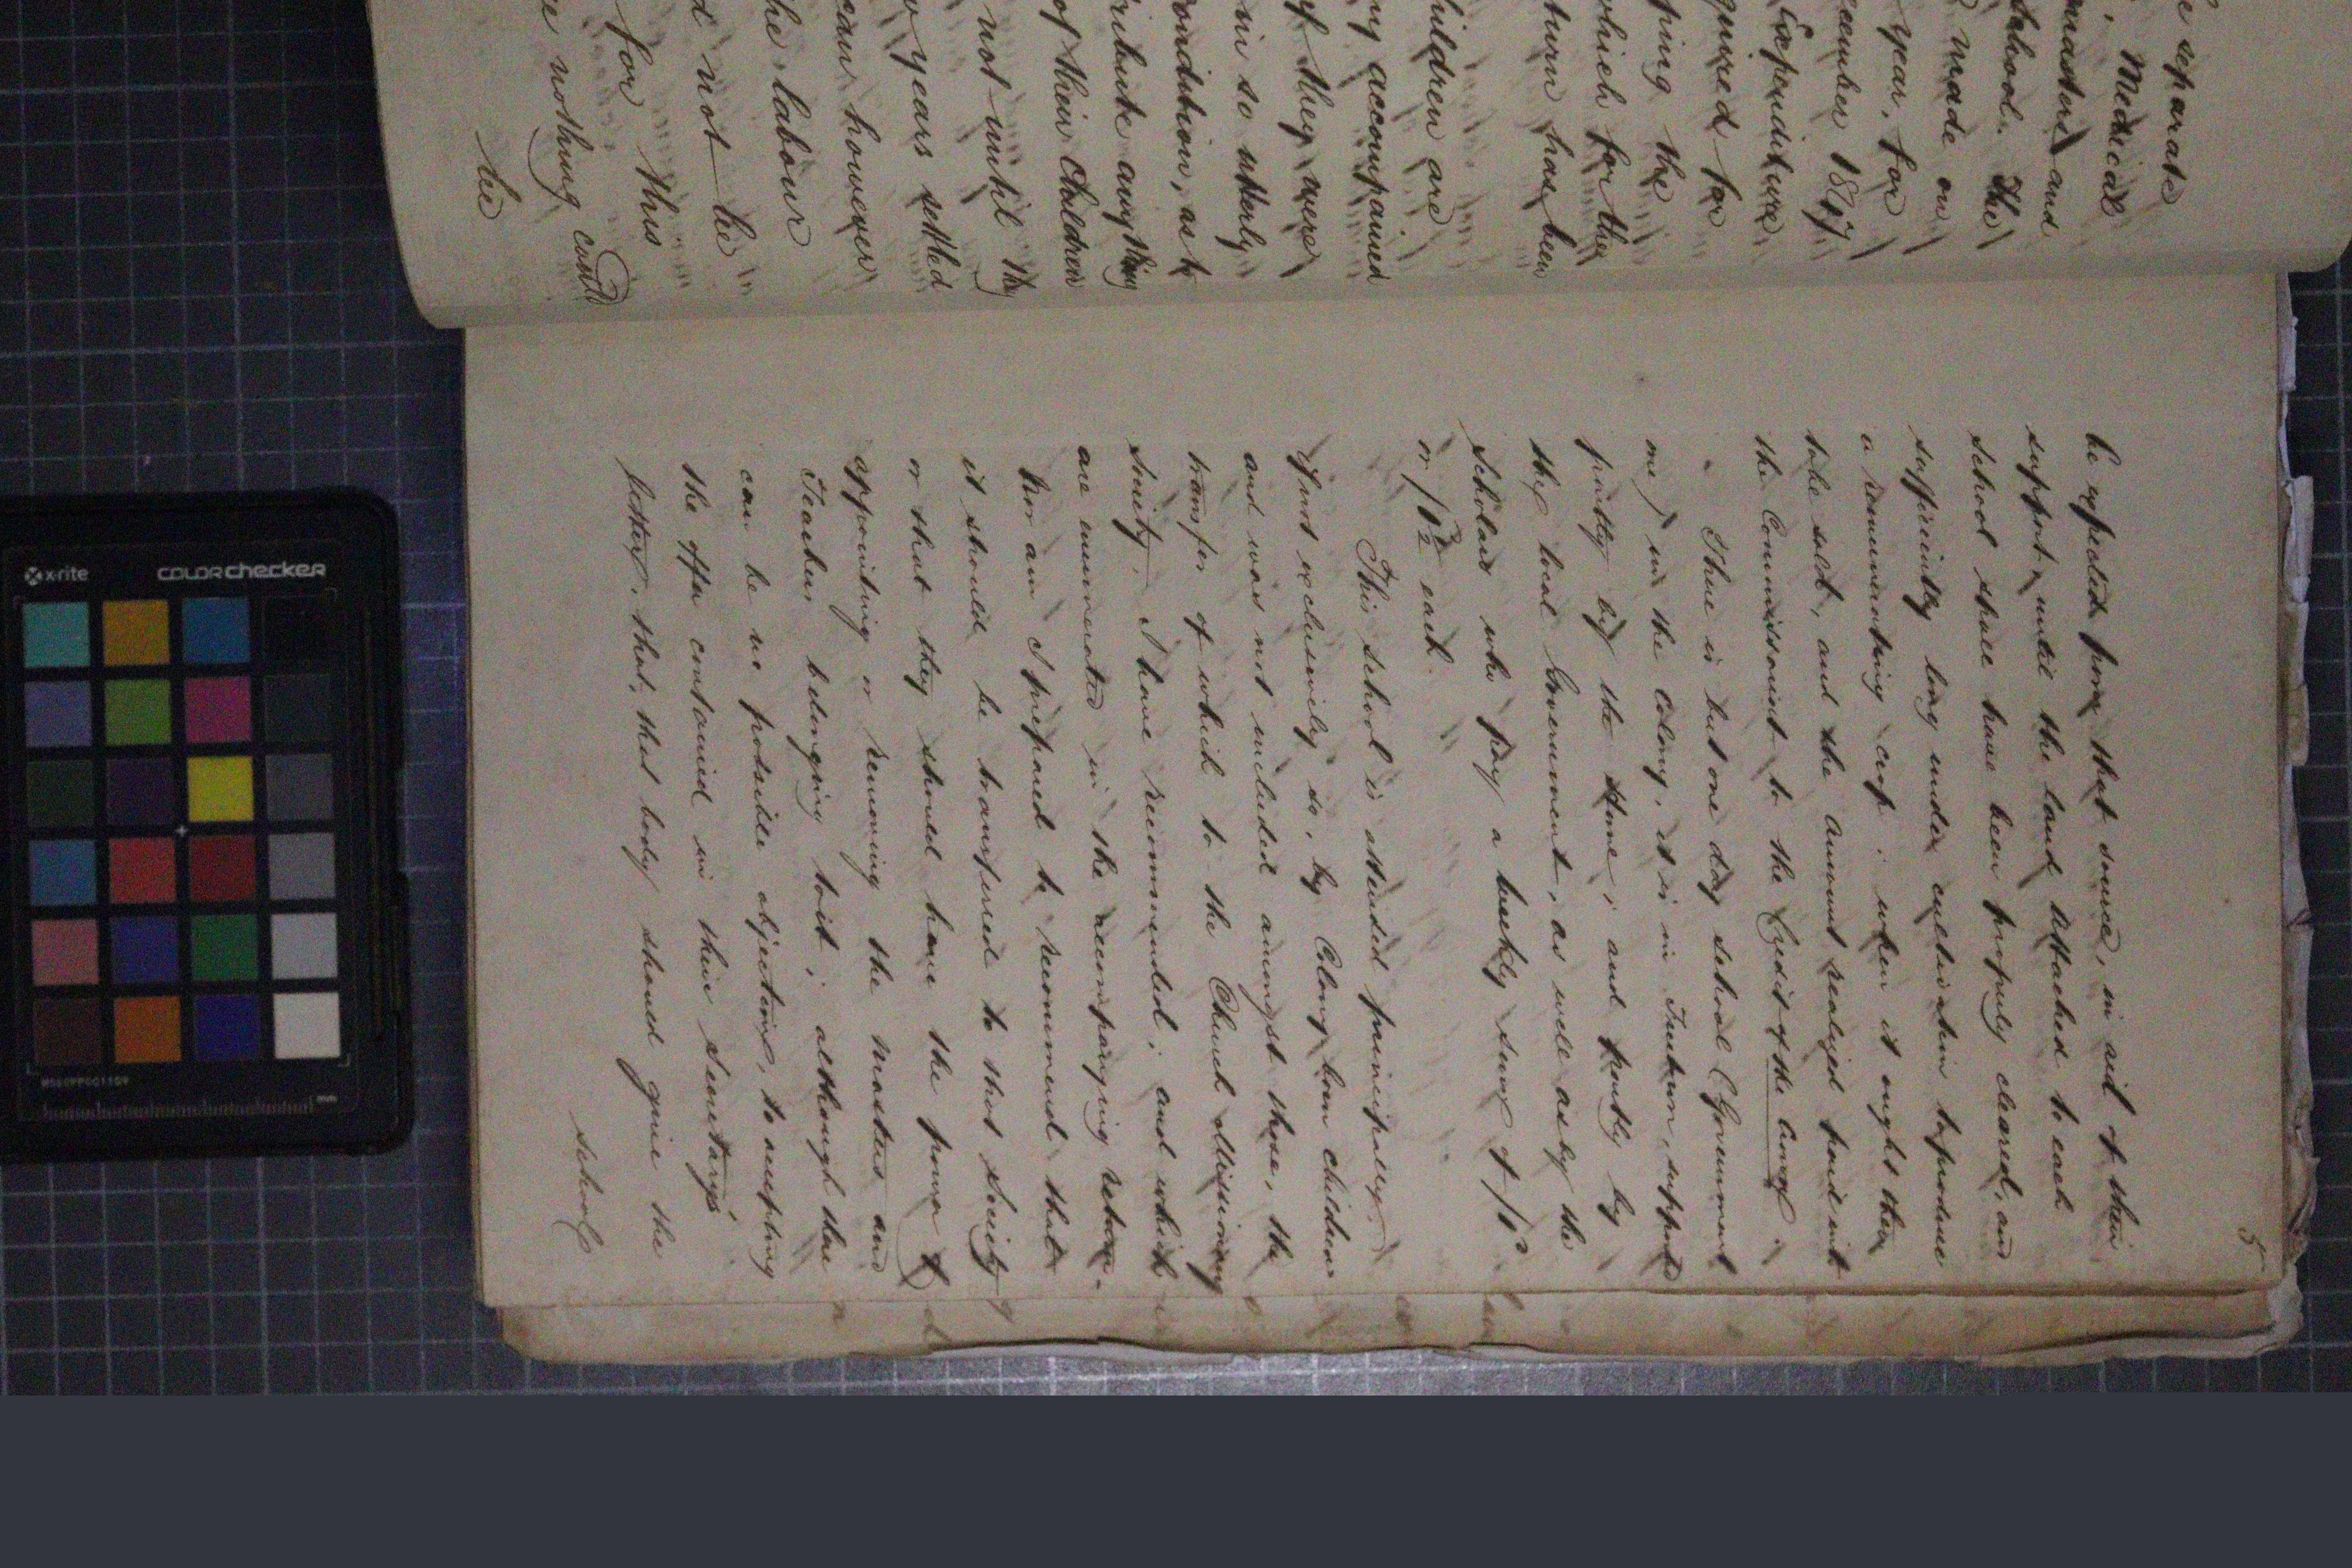 e separate
, Medical
masters and
School. The
made on
year, for
ecember 1847
Expenditure
quired for
ping the
which for the
turn has been
hildren are
ny accompanied
f they were
in so utterly
ondition, as to
ribute anything
of their children
not until the
w years settled
ean however
he labour
d not be
for this
e nothing could
be
5
be expected from that source, in aid of their
support, until the land attached to each
school shall have been properly cleared, and
sufficiently long under cultivation to produce
a remunerating crop; when it ought then
to be sold, and the amount realized paid into
the Commissariat to the Credit of the Crown.
There is but one day school (Government
one) in the Colony, it is in Freetown, supported
partly by the Home, and partly by
the local Government, as well as by the
Scholars who pay a weekly sum of
or /1½ each.
This school is attended principally,
if not exclusively so, by Colony born children
and was not included amongst those, the
transfer of which to the Church Missionary
Society, I have recommended; and which
are enumerated in the accompanying return.
Nor am I prepared to recommend that
it should be transferred to that Society
or that they should have the power of
appointing or removing the Masters and
Teachers belonging to it; although there
can be no possible objection, to accepting
the offer contained in their Secretary's
letter, that, that body should give the
school
x-rite
colorchecker
mm